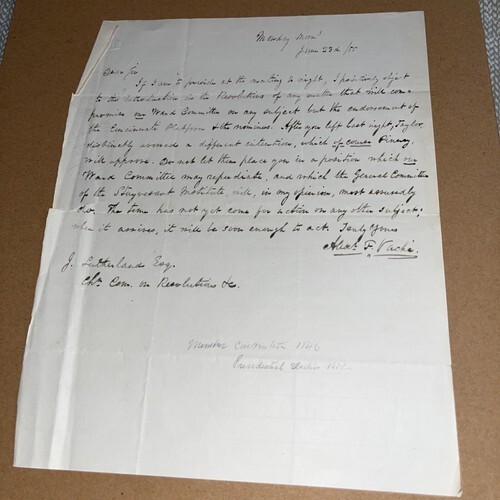 Monday Morng
June 23d /56
Dear Sir
If I am to preside at the meeting to night, I positively object
to the introduction in the Resolutions of any matter that will com-
promise our Ward Committee on any subject but the endorsement of
the Cincinnati Platform & the nominees. After you left last night, Taylor
distinctly avowed a different intention, which of course Pinney
will approve. Do not let them place you in a position which our
Ward Committee may repudiate, and which the General Committee
of the Stuyvesant Institute, will, in my opinion, most assuredly
do. The time has not yet come for action on any other subject;
when it arrives, it will be soon enough to act. Truly Yours
Alexr. F. Vache.
J. Sutherland Esq.
Chn. Com. on Resolutions &c.
Member Convention 1846
Presidential Elector